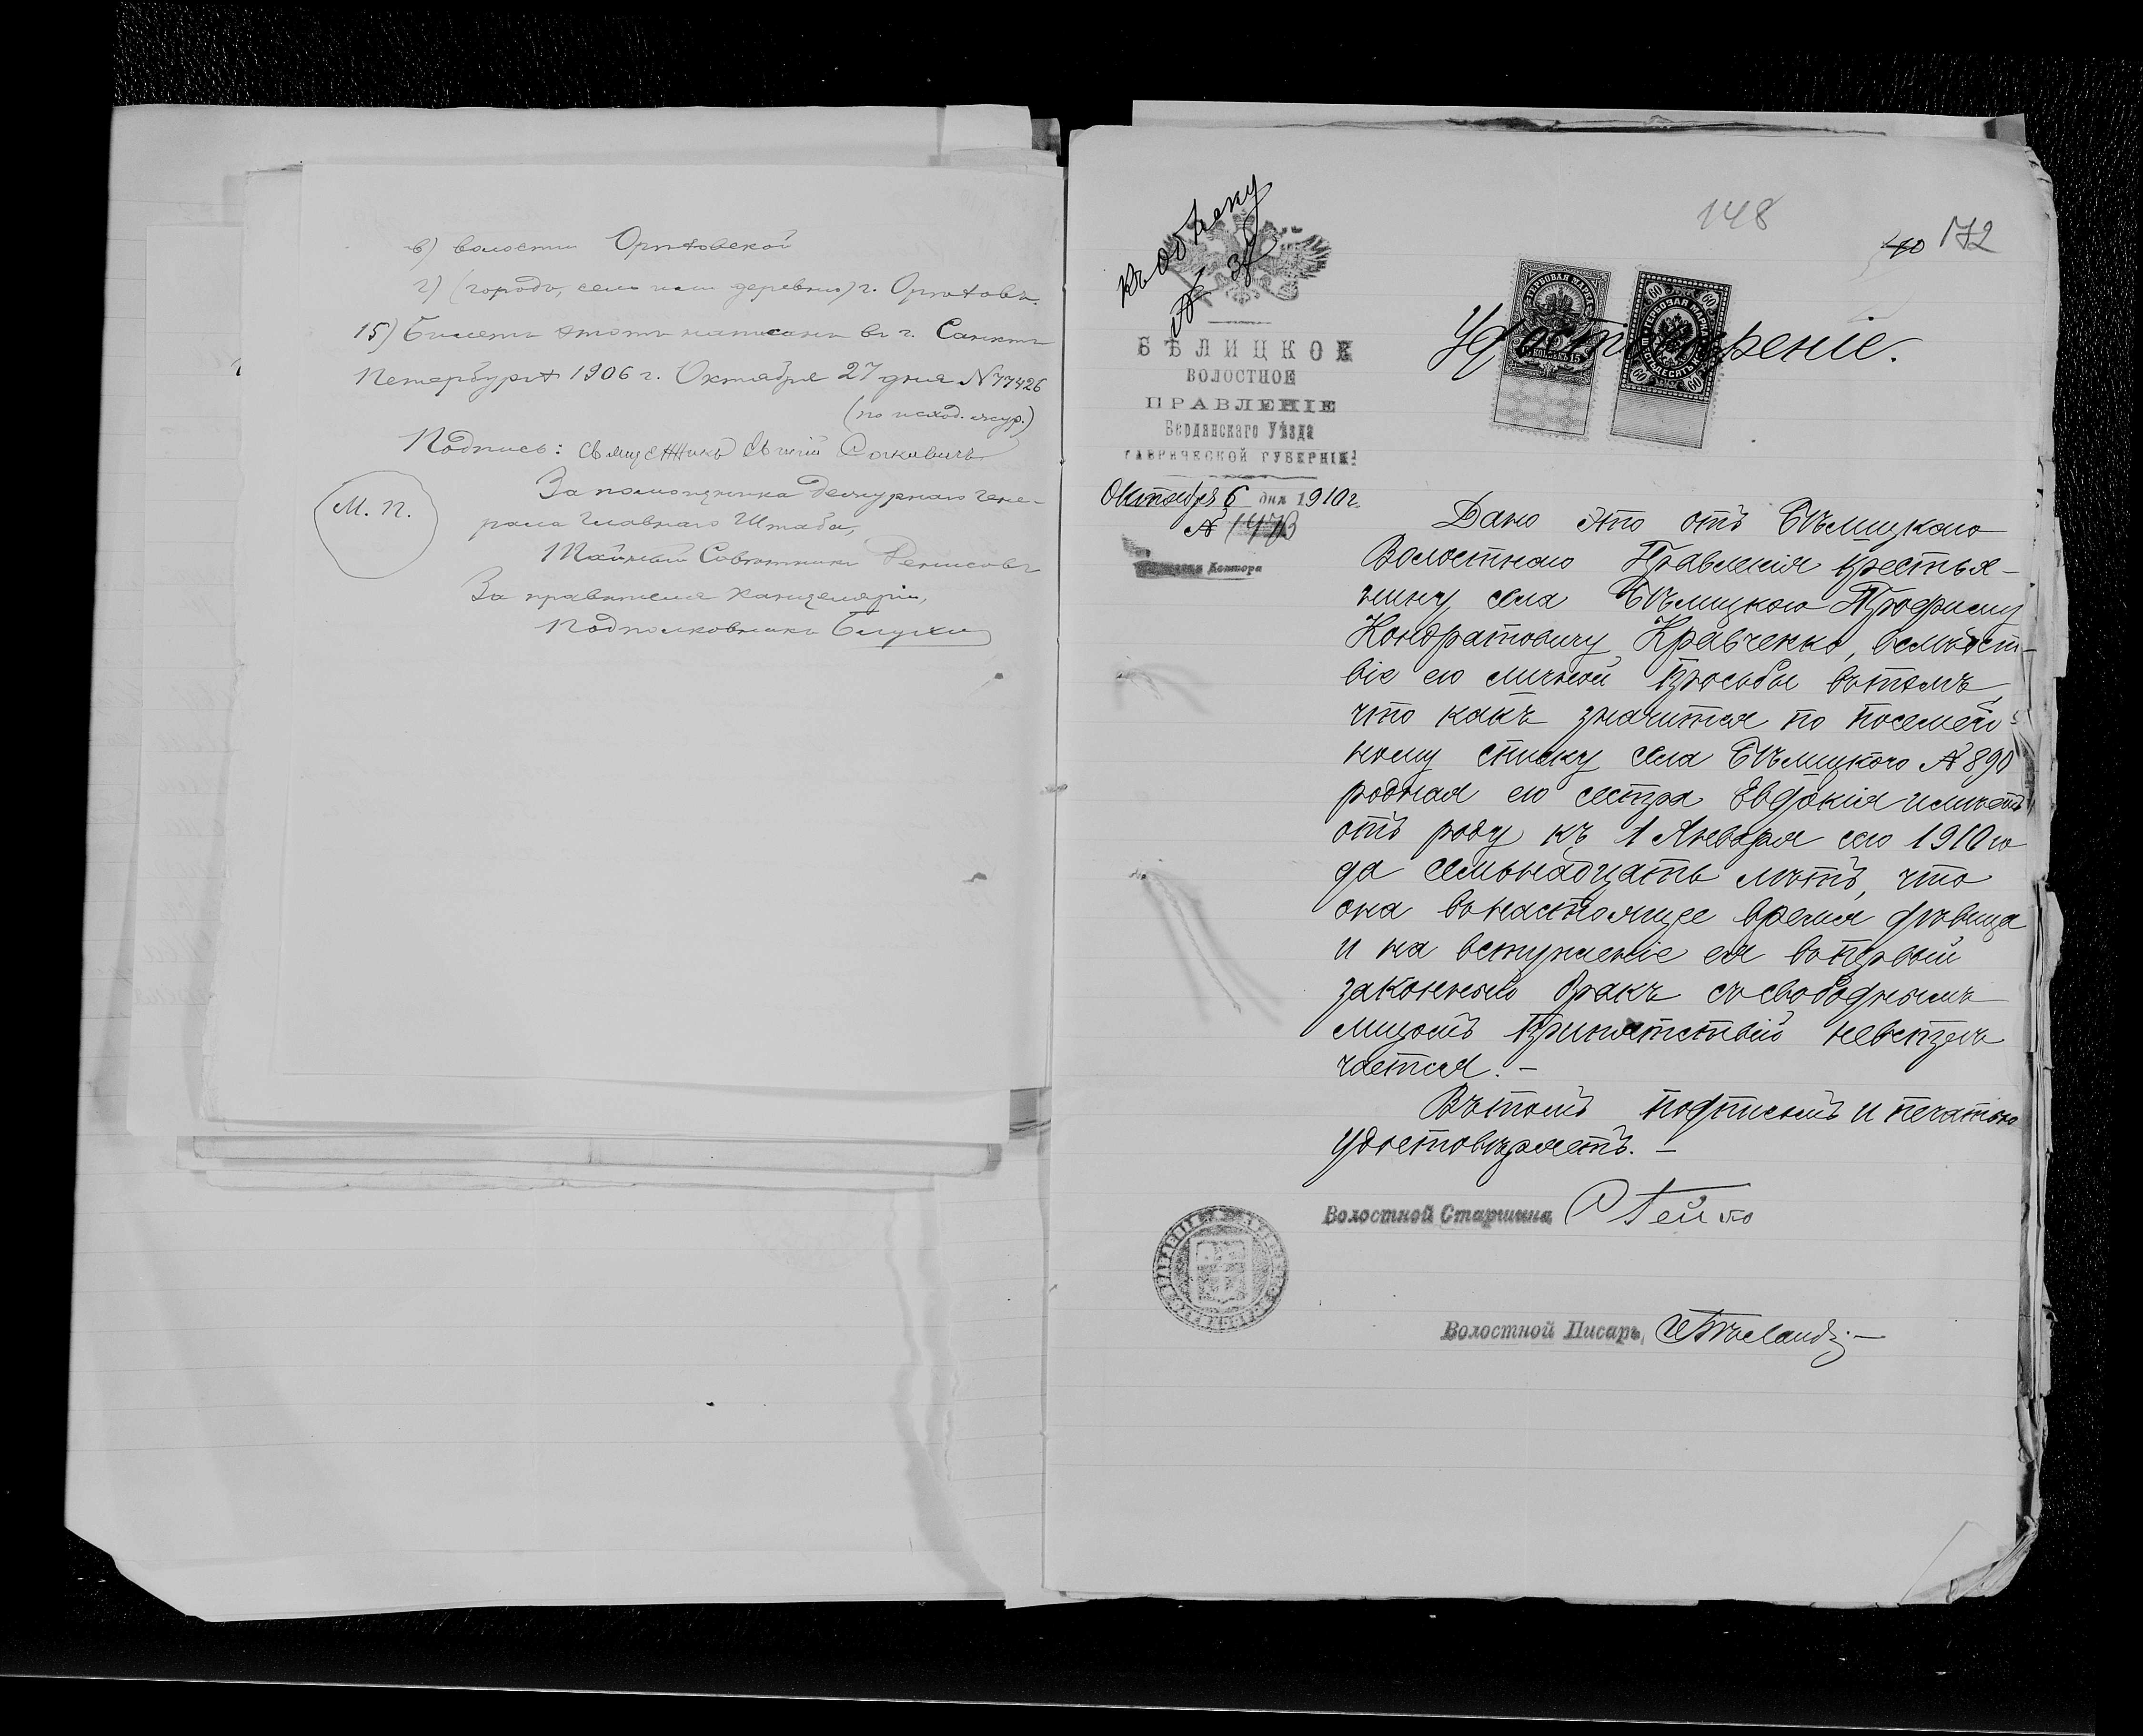 в) волости Орловской
г) (городъ, село или деревню) г. Орловъ.
15) Билетъ этотъ написанъ въ г. Санктъ
Петербургѣ 1906 г. Октября 27 дня N 77426
(по исход. жур.)
Подпись: священникъ
М. П.
За помощника дежурнаго гене-
рала Главнаго Штаба,
Тайный Совѣтникъ Денисовъ
За правителя канцеляріи,
Подполковникъ
148
40 172
Къ обыску
№ 38
БѢЛИЦКОЕ
ВОЛОСТНОЕ
ПРАВЛЕНІЕ
Бердянскаго Уѣзда
ТАВРИЧЕСКОЙ ГУБЕРНІИ
Октября 6 дня 1910 г.
№ 1473
Контора
ГЕРБОВАЯ МАРКА
КОПѢЕКЪ 15
60 ГЕРБОВАЯ МАРКА 60
60 60
Удостовѣреніе.
Дано это отъ Бѣлицкаго
Волостного Правленія крестья-
нину села Бѣлицкаго Трофиму
Кондратовичу Кравченко, вслѣдст-
віе его личной просьбы въ томъ,
что какъ значится по посемей-
ному списку села Бѣлицкаго № 890
родная его сестра Евдокія имѣетъ
отъ роду къ 1 Января сего 1910 го
да семьнадцать лѣтъ, что
она въ настоящее время дѣвица
и на вступленіе ея въ первый
законный бракъ съ свободнымъ
лицомъ припятствій невстрѣ
чается. —
Въ томъ подписомъ и печатью
удостовѣряетъ. —
Волостной Старшина
Волостной Писарь,